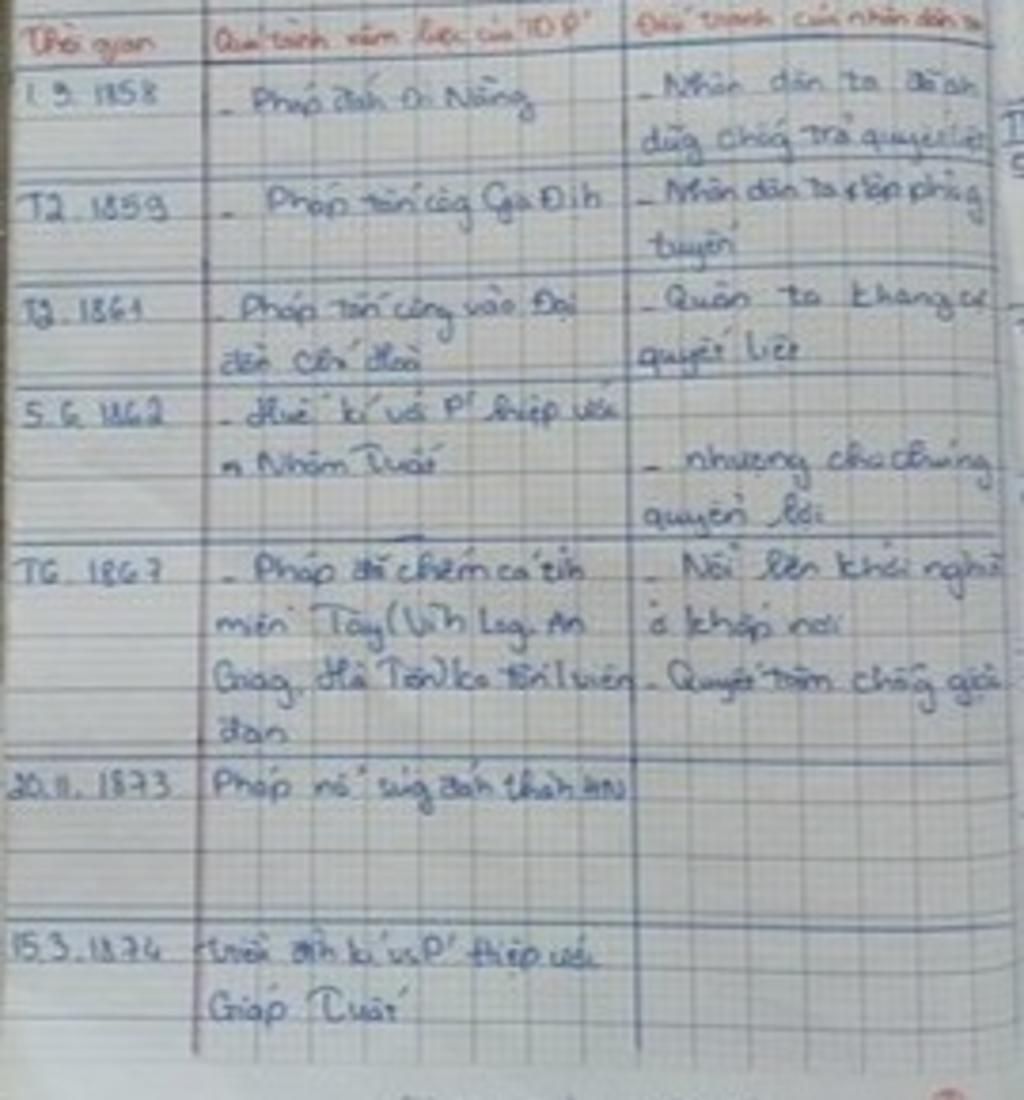 Thời gian
Quá trình xâm lược của TDP'
Đấu tranh của nhân dân ta
1.9.1858
- Pháp đánh Đ. Nẵng
- Nhân dân ta đã ah
dũg chốg trả quyết liệt
T2.1859
- Pháp tấn côg Gia Đih
- Nhân dân ta lập phòg
tuyến
T2.1861
- Pháp tấn công vào Đại
đồn Chí Hoà
- Quân ta kháng cự
quyết liệt
5.6.1862
- Huế kí với P' hiệp ước
Nhâm Tuất
- nhượng cho chúng
quyền lợi
T6.1867
- Pháp đã chiếm cá tỉh
miền Tây (Vĩh Log. An
Giag, Hà Tiên) ko tốn 1 viên
đạn
- Nổi lên khởi nghĩ
ở khắp nơi
- Quyết tâm chốg giặc
20.11.1873
Pháp nổ súg đáh thàh HN
15.3.1874
triều đìh kí vs P' hiệp ước
Giáp Tuất